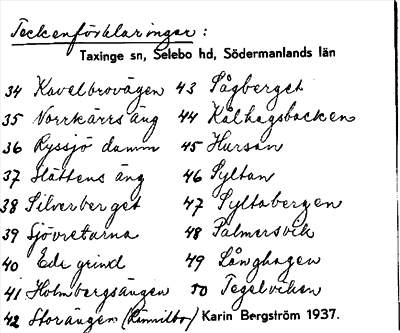 Teckenförklaringar:
Taxinge sn, Selebo hd, Södermanlands län
34 Kavelbrovägen
35 Norrkärrs äng
36 Ryssjö damm
37 Slättens äng
38 Silverberget
39 Sjövretarna
40 Ede grind
41 Holmbergsängen
42 Storängen (Kinnilbo)
43 Sågberget
44 Kålhagsbacken
45 Hursan
46 Syltan
47 Syltabergen
48 Palmersvik
49 Långhagen
50 Tegelviken
Karin Bergström 1937.